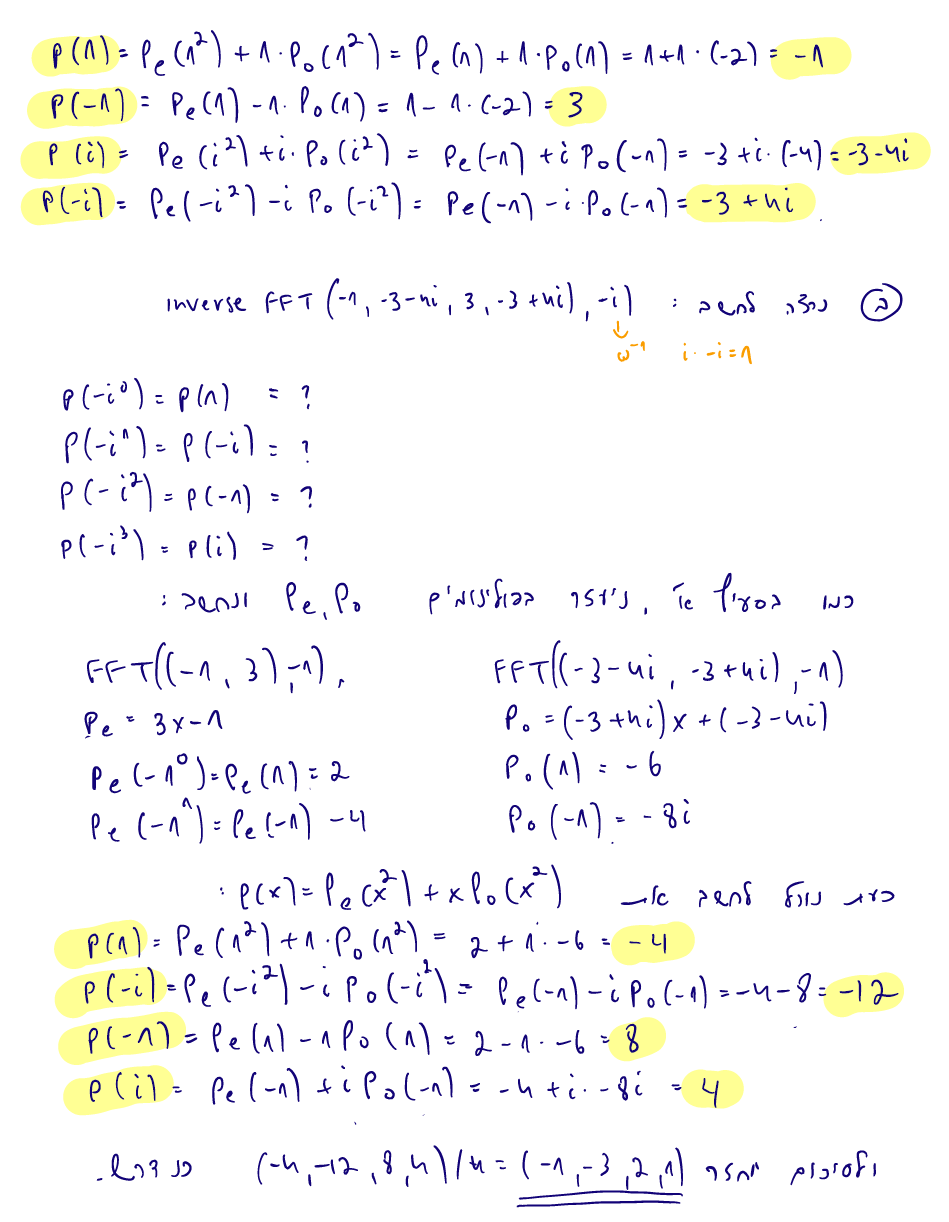 P(1) = Pe(1²) + 1·Po(1²) = Pe(1) + 1·Po(1) = 1+1·(-2) = -1
P(-1) = Pe(1) - 1·Po(1) = 1 - 1·(-2) = 3
P(i) = Pe(i²) + i·Po(i²) = Pe(-1) + i Po(-1) = -3 + i·(-4) = -3-4i
P(-i) = Pe(-i²) - i Po(-i²) = Pe(-1) - i·Po(-1) = -3 + 4i
ב נרצה לחשב : inverse FFT (-1, -3-4i, 3, -3+4i), -i)
↓
ω⁻¹ i·-i=1
P(-i⁰) = P(1) = ?
P(-i¹) = P(-i) = ?
P(-i²) = P(-1) = ?
P(-i³) = P(i) = ?
כמו בסעיף א', ניעזר בפולינומים Pe, Po ונחשב :
FFT((-1, 3), -1), FFT((-3-4i, -3+4i), -1)
Pe = 3x-1 Po = (-3+4i)x + (-3-4i)
Pe(-1⁰) = Pe(1) = 2 Po(1) = -6
Pe(-1¹) = Pe(-1) -4 Po(-1) = -8i
כעת נוכל לחשב את P(x) = Pe(x²) + xPo(x²) :
P(1) = Pe(1²) + 1·Po(1²) = 2 + 1·-6 = -4
P(-i) = Pe(-i²) - i Po(-i²) = Pe(-1) - i Po(-1) = -4-8 = -12
P(-1) = Pe(1) - 1 Po(1) = 2 - 1·-6 = 8
P(i) = Pe(-1) + i Po(-1) = -4 + i·-8i = 4
ולסיכום יוחזר (-4, -12, 8, 4)/4 = (-1, -3, 2, 1) כנדרש.